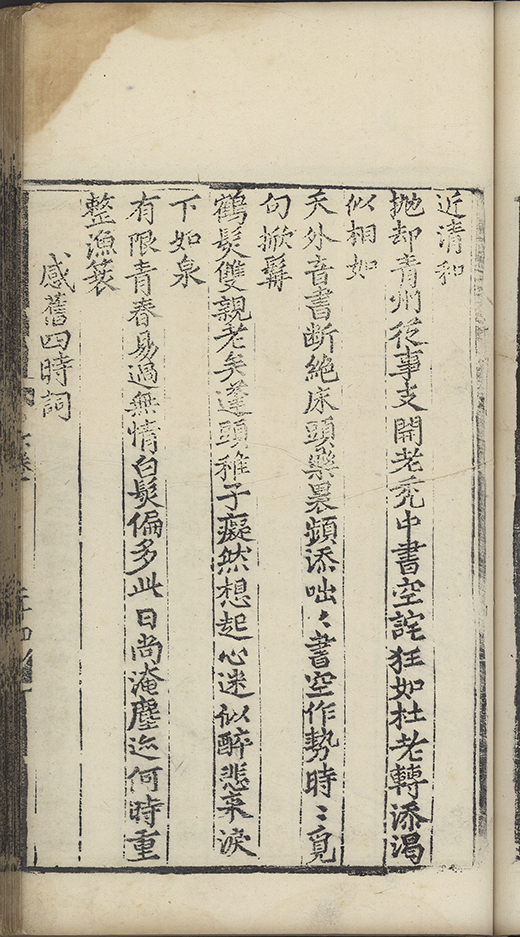 近清和
抛却青州從事支開老禿中書空詫狂如杜老轉添渴
似相如
天外音書断絶床頭藥裹頻添咄〻書空作勢時〻覓
句掀髯
鶴髮雙親老矣蓬頭稚子癡然想起心迷似醉悲來淚
下如泉
有限青春易過無情白髮偏多此日尚淹塵迹何時重
整漁蓑
感舊四時詞